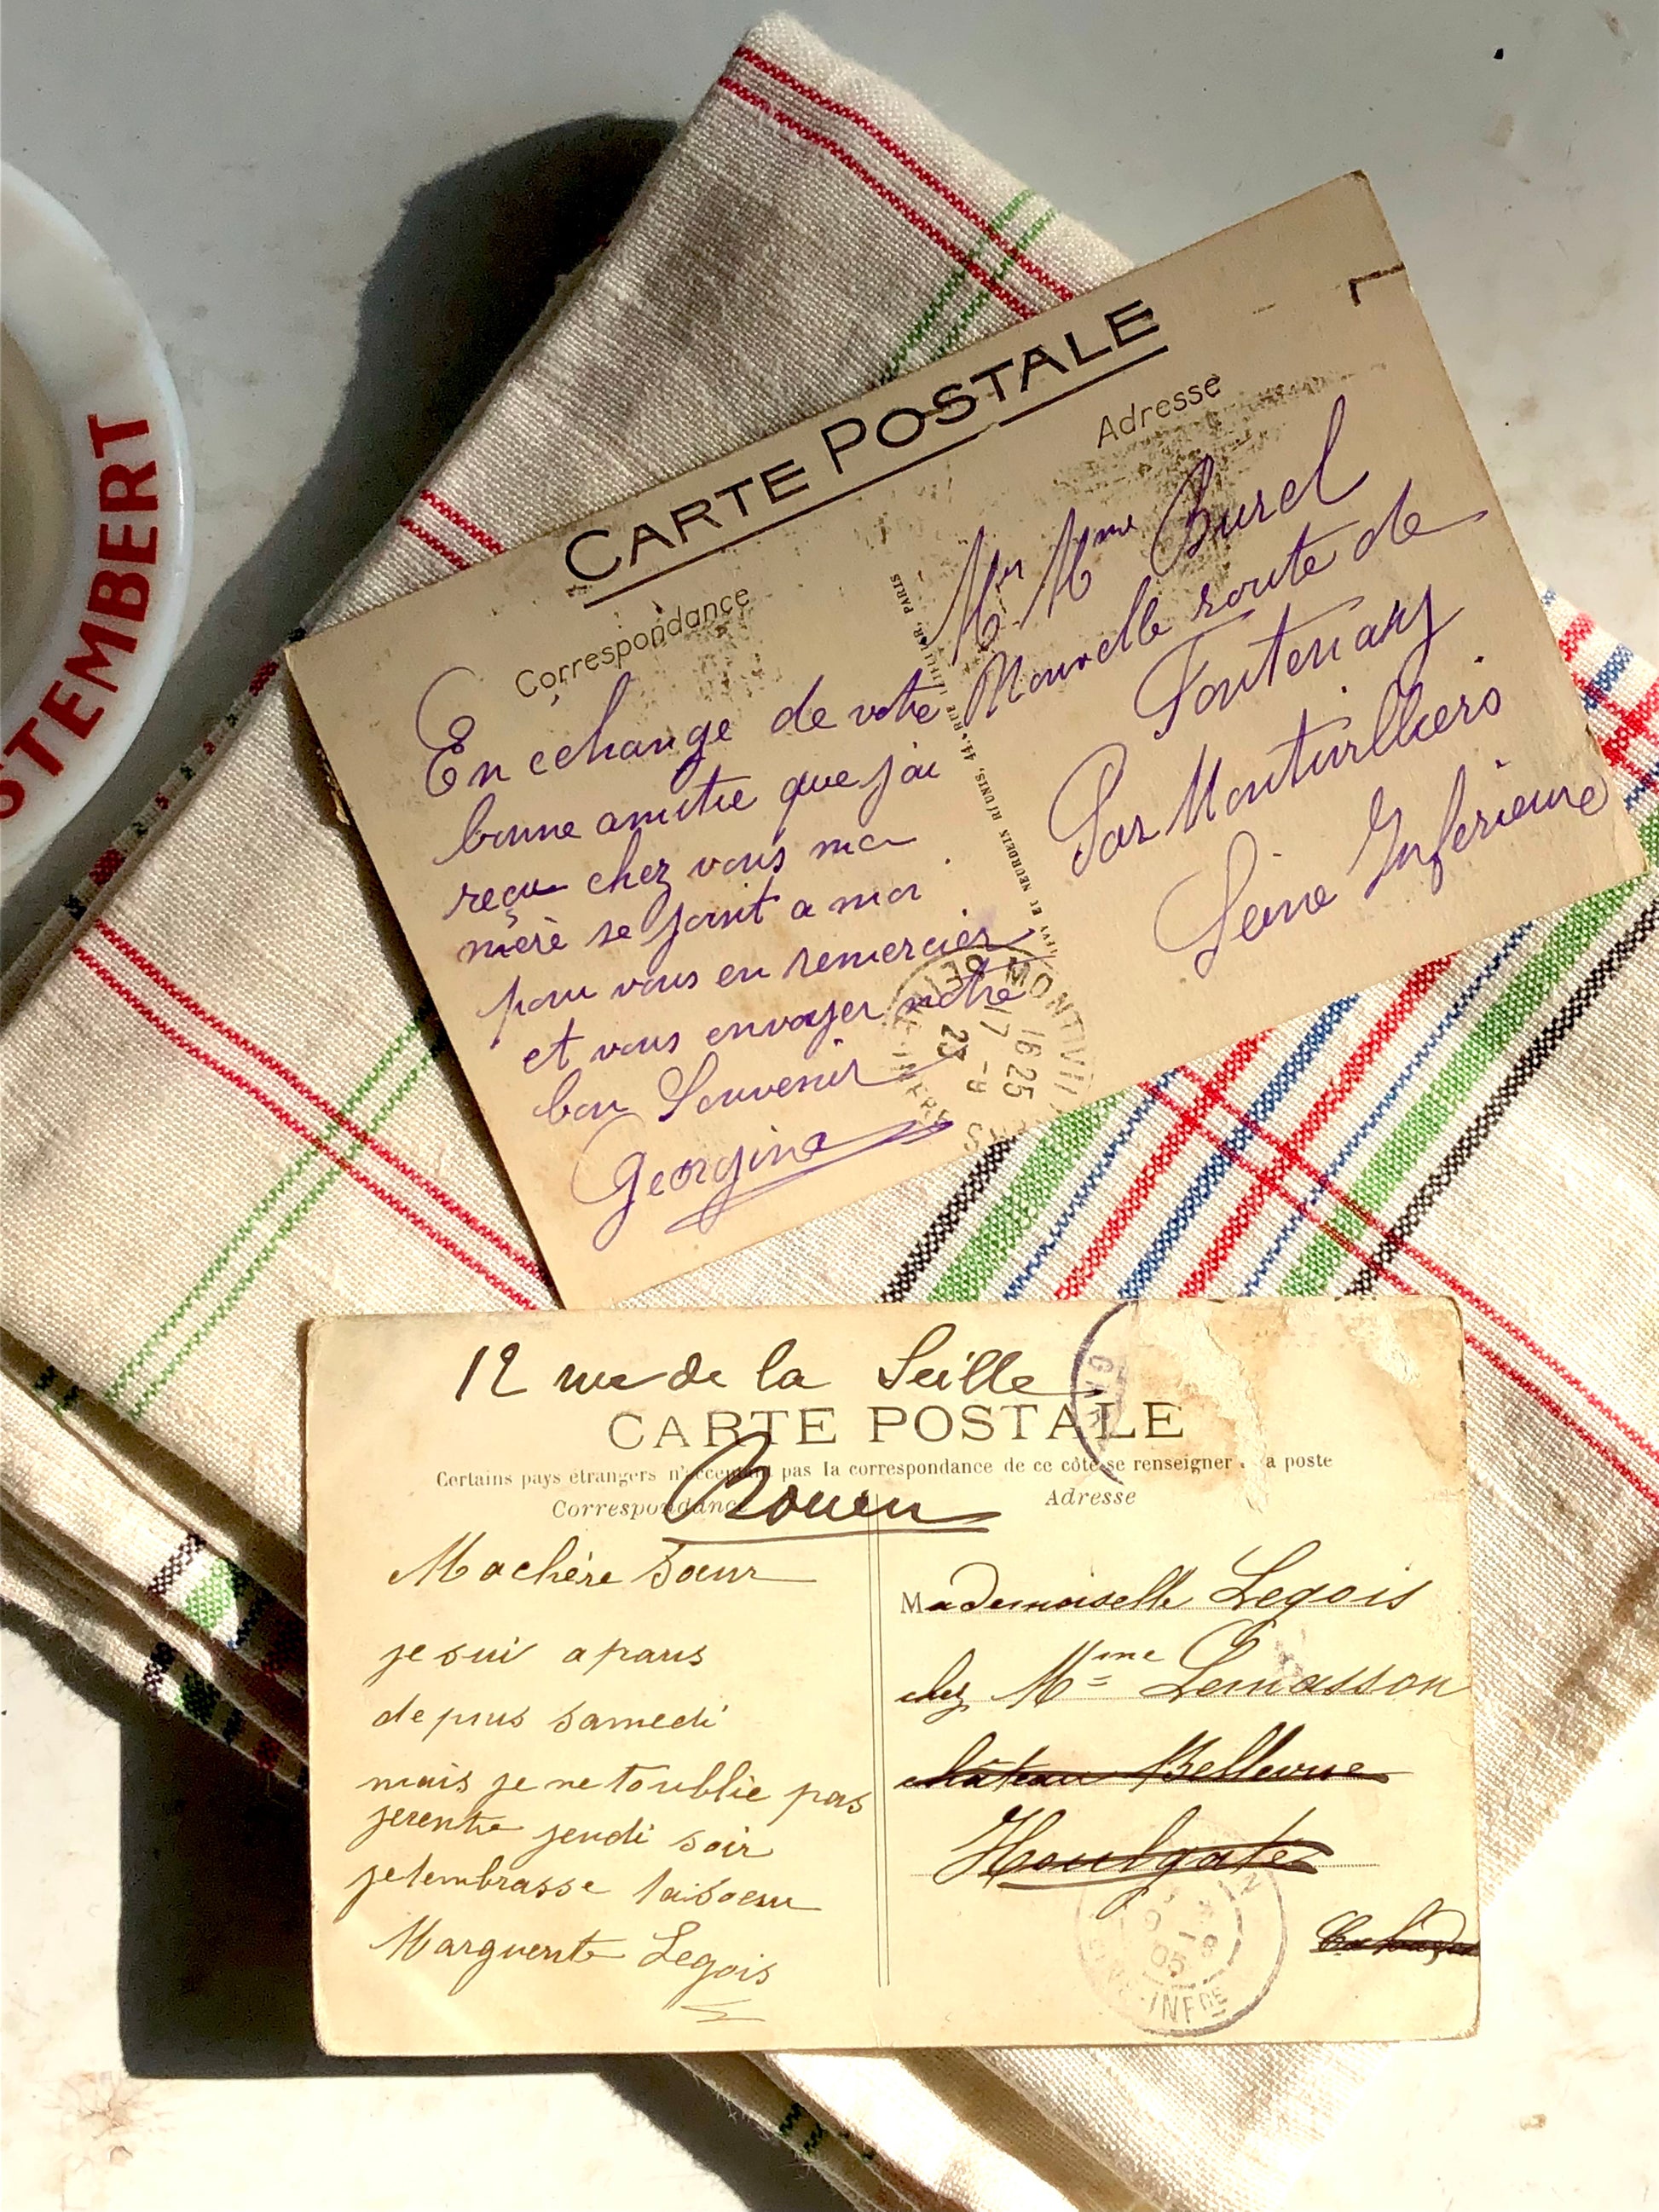 STEMBERT
CARTE POSTALE
Correspondance
Adresse
En echange de votre
bonne amitie que j'ai
reçu chez vous ma
mere se joint a moi
pour vous en remercier
et vous envoyer notre
bon Souvenir
Georgina
Mr Mme Burel
Nouvelle route de
Fontenay
Par Montivilliers
Seine Inferieure
LEVY ET NEURDEIN REUNIS, 44, RUE LETELLIER, PARIS
MONTIVILL
16 25
17 - 9
23
12 rue de la Seille
CARTE POSTALE
Certains pays étrangers n'acceptent pas la correspondance de ce côté se renseigner a poste
Rouen
Correspondance
Adresse
Ma chère Sœur
je sui a paris
depuis samedi
mais je ne t'oublie pas
je rentre jeudi soir
je t'embrasse ta soeur
Marguerite Legois
Mademoiselle Legois
chez Mme Lemasson
château Bellevue
Houlgate
05
INFRE